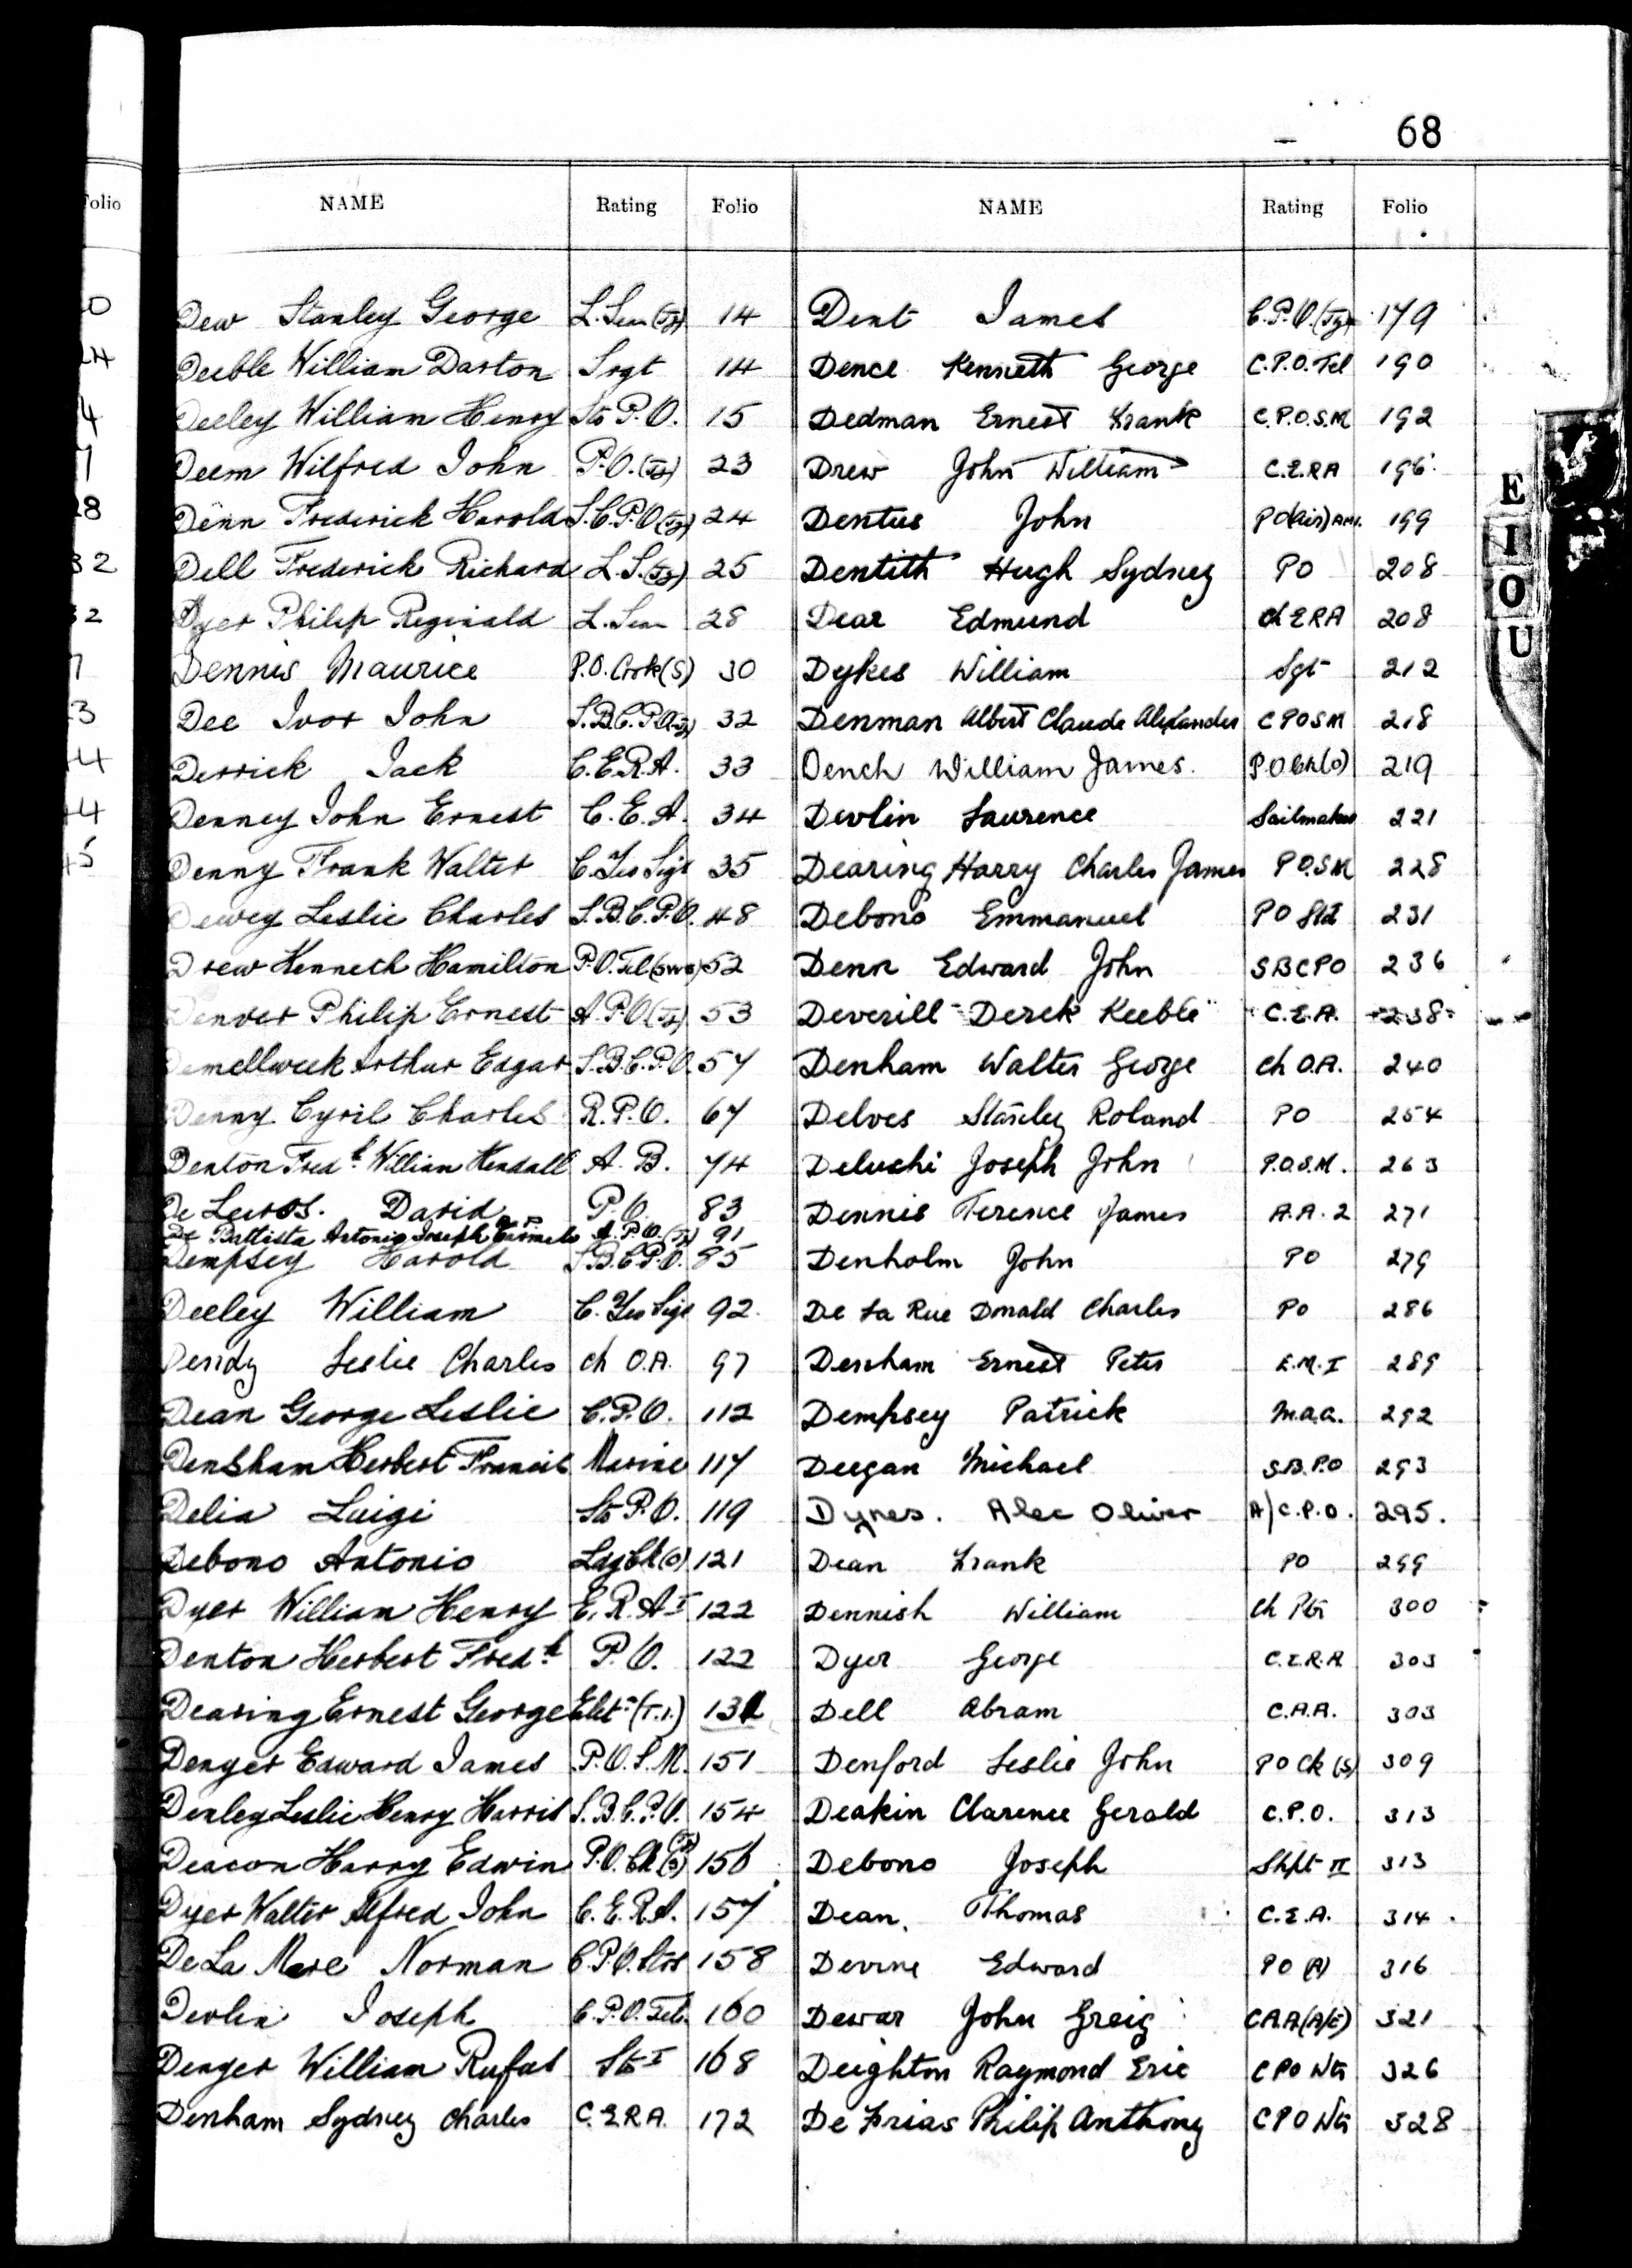 68
Folio
NAME Rating Folio NAME Rating Folio
Dew Stanley George L. Sea (Ty) 14 Dent James C.P.O. (Ty) 179
Deeble William Darton Srgt 14 Dence Kenneth George C.P.O. Tel 190
Deeley William Henry Sto P.O. 15 Dedman Ernest Frank C.P.O.S.M 192
Deem Wilfred John P.O. (Ty) 23 Drew John William C.E.R.A 196
Denn Frederick Harold S.C.P.O (Ty) 24 Dentus John PO(Air) AM1. 199
Dell Frederick Richard L.S. (Ty) 25 Dentith Hugh Sydney PO 208
Dyer Philip Reginald L. Sea 28 Dear Edmund Ch ERA 208
Dennis Maurice P.O. Cook (S) 30 Dykes William Sgt 212
Dee Ivor John S.B.C.P.O (Ty) 32 Denman Albert Claude Alexander C POSM 218
Derrick Jack C.E.R.A. 33 Dench William James. P.O Ck (O) 219
Denney John Ernest C.E.A. 34 Devlin Laurence Sailmaker 221
Denny Frank Walter C. Yeo Sigs 35 Dearing Harry Charles James PO.SM 228
Dewey Leslie Charles S.B.C.P.O. 48 Debono Emmanuel PO Std 231
Drew Kenneth Hamilton P.O. Tel (SWS) 52 Denn Edward John SBCPO 236
Denver Philip Ernest A.P.O (Ty) 53 Deverill Derek Keeble C.E.A. 238
Demellweek Arthur Edgar S.B.C.P.O. 57 Denham Walter George Ch O.A. 240
Denny Cyril Charles R.P.O. 67 Delves Stanley Roland PO 254
Denton Fredk William Kendall A.B. 74 Deluchi Joseph John P.O.S.M. 263
De Leiros. David P.O. 83 Dennis Terence James A.A.2 271
De Battista Antonio Joseph Carmelo A.P.O. (Ty) 91
Dempsey Harold S.B.C.P.O. 85 Denholm John PO 279
Deeley William C. Yeo Sigs 92. De La Rue Donald Charles PO 286
Dendy Leslie Charles Ch O.A. 97 Denham Ernest Peter E.M.I 289
Dean George Leslie C.P.O. 112 Dempsey Patrick M.a.a. 292
Densham Herbert Francis Marine 117 Deegan Michael S.B.P.O 293
Delia Luigi Sto P.O. 119 Dynes. Alec Oliver A/C.P.O. 295.
Debono Antonio Ldg Ck (O) 121 Dean Frank PO 299
Dyer William Henry E.R.A I 122 Dennish William Ch Ptr 300
Denton Herbert Fredk P.O. 122 Dyer George C.E.R.A 303
Dearing Ernest George Elect (T.1.) 131 Dell Abram C.A.A. 303
Denyer Edward James P.O.S.M. 151 Denford Leslie John PO Ck (S) 309
Denley Leslie Henry Harris S.B.C.P.O. 154 Deakin Clarence Gerald C.P.O. 313
Deacon Harry Edwin P.O. Ck (S) (Ty) 156 Debono Joseph Shpt II 313
Dyer Walter Alfred John C.E.R.A. 157 Dean, Thomas C.E.A. 314
De La Mare Norman C.P.O. Stos 158 Devine Edward PO (A) 316
Devlin Joseph C.P.O. Tel. 160 Dewar John Greig CAA(A/E) 321
Denyer William Rufus Sto I 168 Deighton Raymond Eric C PO Wtr 326
Denham Sydney Charles C.E.R.A. 172 De Frias Philip Anthony C PO Wtr 328
E
I
O
U